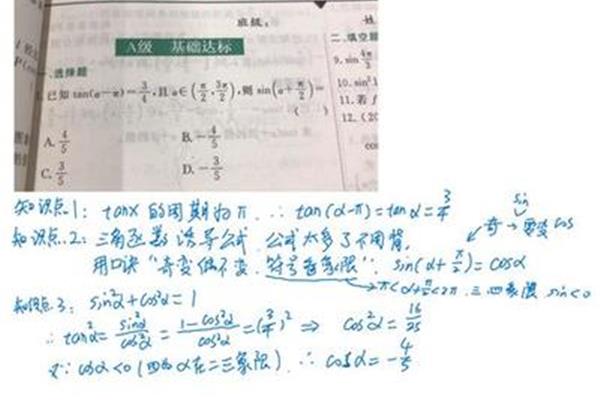 班级：
姓
A级 基础达标
一、选择题
已知 tan(α－π)＝3/4，且 α∈(π/2, 3π/2)，则 sin(α＋π/2)＝
( )
A. 4/5
B. －4/5
C. 3/5
D. －3/5
二、填空题
9. sin 4π/3
10. sin²1
11. 若 f
12. (20
cos
知识点1: tanx 的周期为π. ∴ tan(α-π)=tanα=3/4
知识点2: 三角函数诱导公式. 公式太多了不用背,
用口诀"奇变偶不变,符号看象限": sin(α+π/2)=cosα
sin
奇→要变cos
π<α+π/2<2π, 三四象限, sin<0
知识点3: sin²α+cos²α=1
∴ tan²α=sin²α/cos²α=1-cos²α/cos²α=(3/4)² ⇒ cos²α=16/25
又∵ cosα<0 (因为α在二三象限) ∴ cosα=-4/5